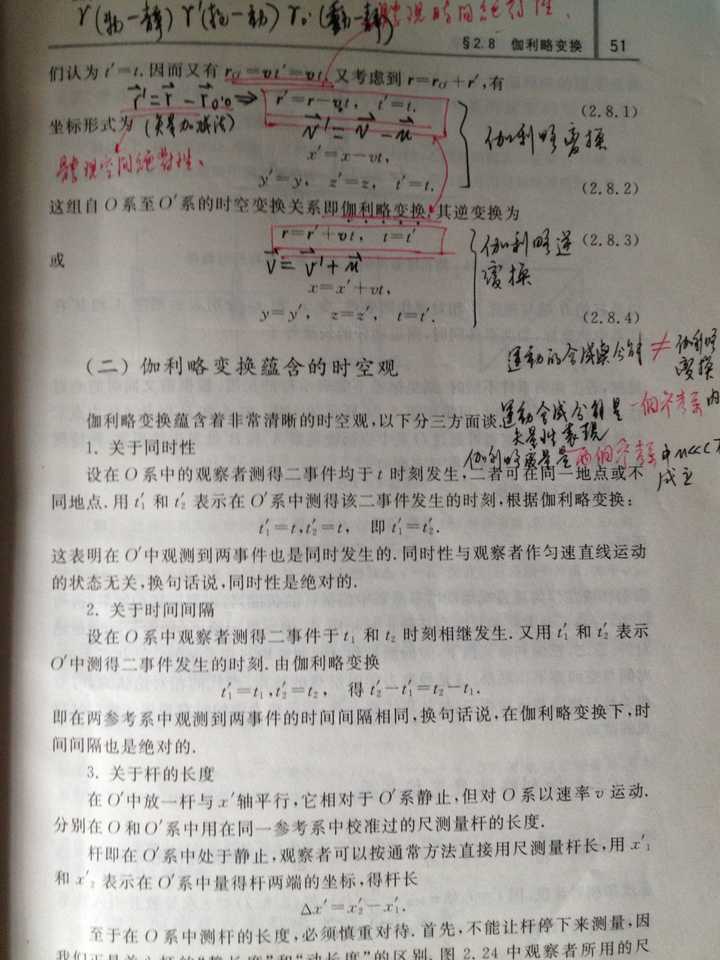 r(物-静) r'(物-动) r₀'(动-静) 体现时间绝对性.
§2.8 伽利略变换 51
们认为t′=t.因而又有r_O′=vt′=vt,又考虑到r=r_O′+r′,有
r⃗′=r⃗-r⃗_O′O ⇒ r′=r-vt, t′=t. (2.8.1)
坐标形式为 (矢量加减法) v⃗′=v⃗-u⃗ 伽利略变换
x′=x-vt,
体现空间绝对性.
y′=y, z′=z, t′=t. (2.8.2)
这组自O系至O′系的时空变换关系即伽利略变换,其逆变换为
r=r′+vt, t=t′ 伽利略逆 (2.8.3)
或 v⃗=v⃗′+u⃗ 变换
x=x′+vt,
y=y′, z=z′, t=t′. (2.8.4)
运动的合成与分解≠伽利略
变换
(二) 伽利略变换蕴含的时空观
伽利略变换蕴含着非常清晰的时空观,以下分三方面谈. 运动合成分解是一个参考系内
矢量性表现
1. 关于同时性 伽利略变换是两个参考系中u<<c下
成立
设在O系中的观察者测得二事件均于t时刻发生,二者可在同一地点或不
同地点.用t′₁和t′₂表示在O′系中测得该二事件发生的时刻,根据伽利略变换:
t′₁=t,t′₂=t, 即t′₁=t′₂.
这表明在O′中观测到两事件也是同时发生的.同时性与观察者作匀速直线运动
的状态无关,换句话说,同时性是绝对的.
2. 关于时间间隔
设在O系中观察者测得二事件于t₁和t₂时刻相继发生.又用t′₁和t′₂表示
O′中测得二事件发生的时刻.由伽利略变换
t′₁=t₁,t′₂=t₂, 得t′₂-t′₁=t₂-t₁.
即在两参考系中观测到两事件的时间间隔相同,换句话说,在伽利略变换下,时
间间隔也是绝对的.
3. 关于杆的长度
在O′中放一杆与x′轴平行,它相对于O′系静止,但对O系以速率v运动.
分别在O和O′系中用在同一参考系中校准过的尺测量杆的长度.
杆即在O′系中处于静止,观察者可以按通常方法直接用尺测量杆长,用x′₁
和x′₂表示在O′系中量得杆两端的坐标,得杆长
Δx′=x′₂-x′₁.
至于在O系中测杆的长度,必须慎重对待.首先,不能让杆停下来测量,因
我们正是关心杆的“静长度”和“动长度”的区别.图2.24中观察者所用的尺